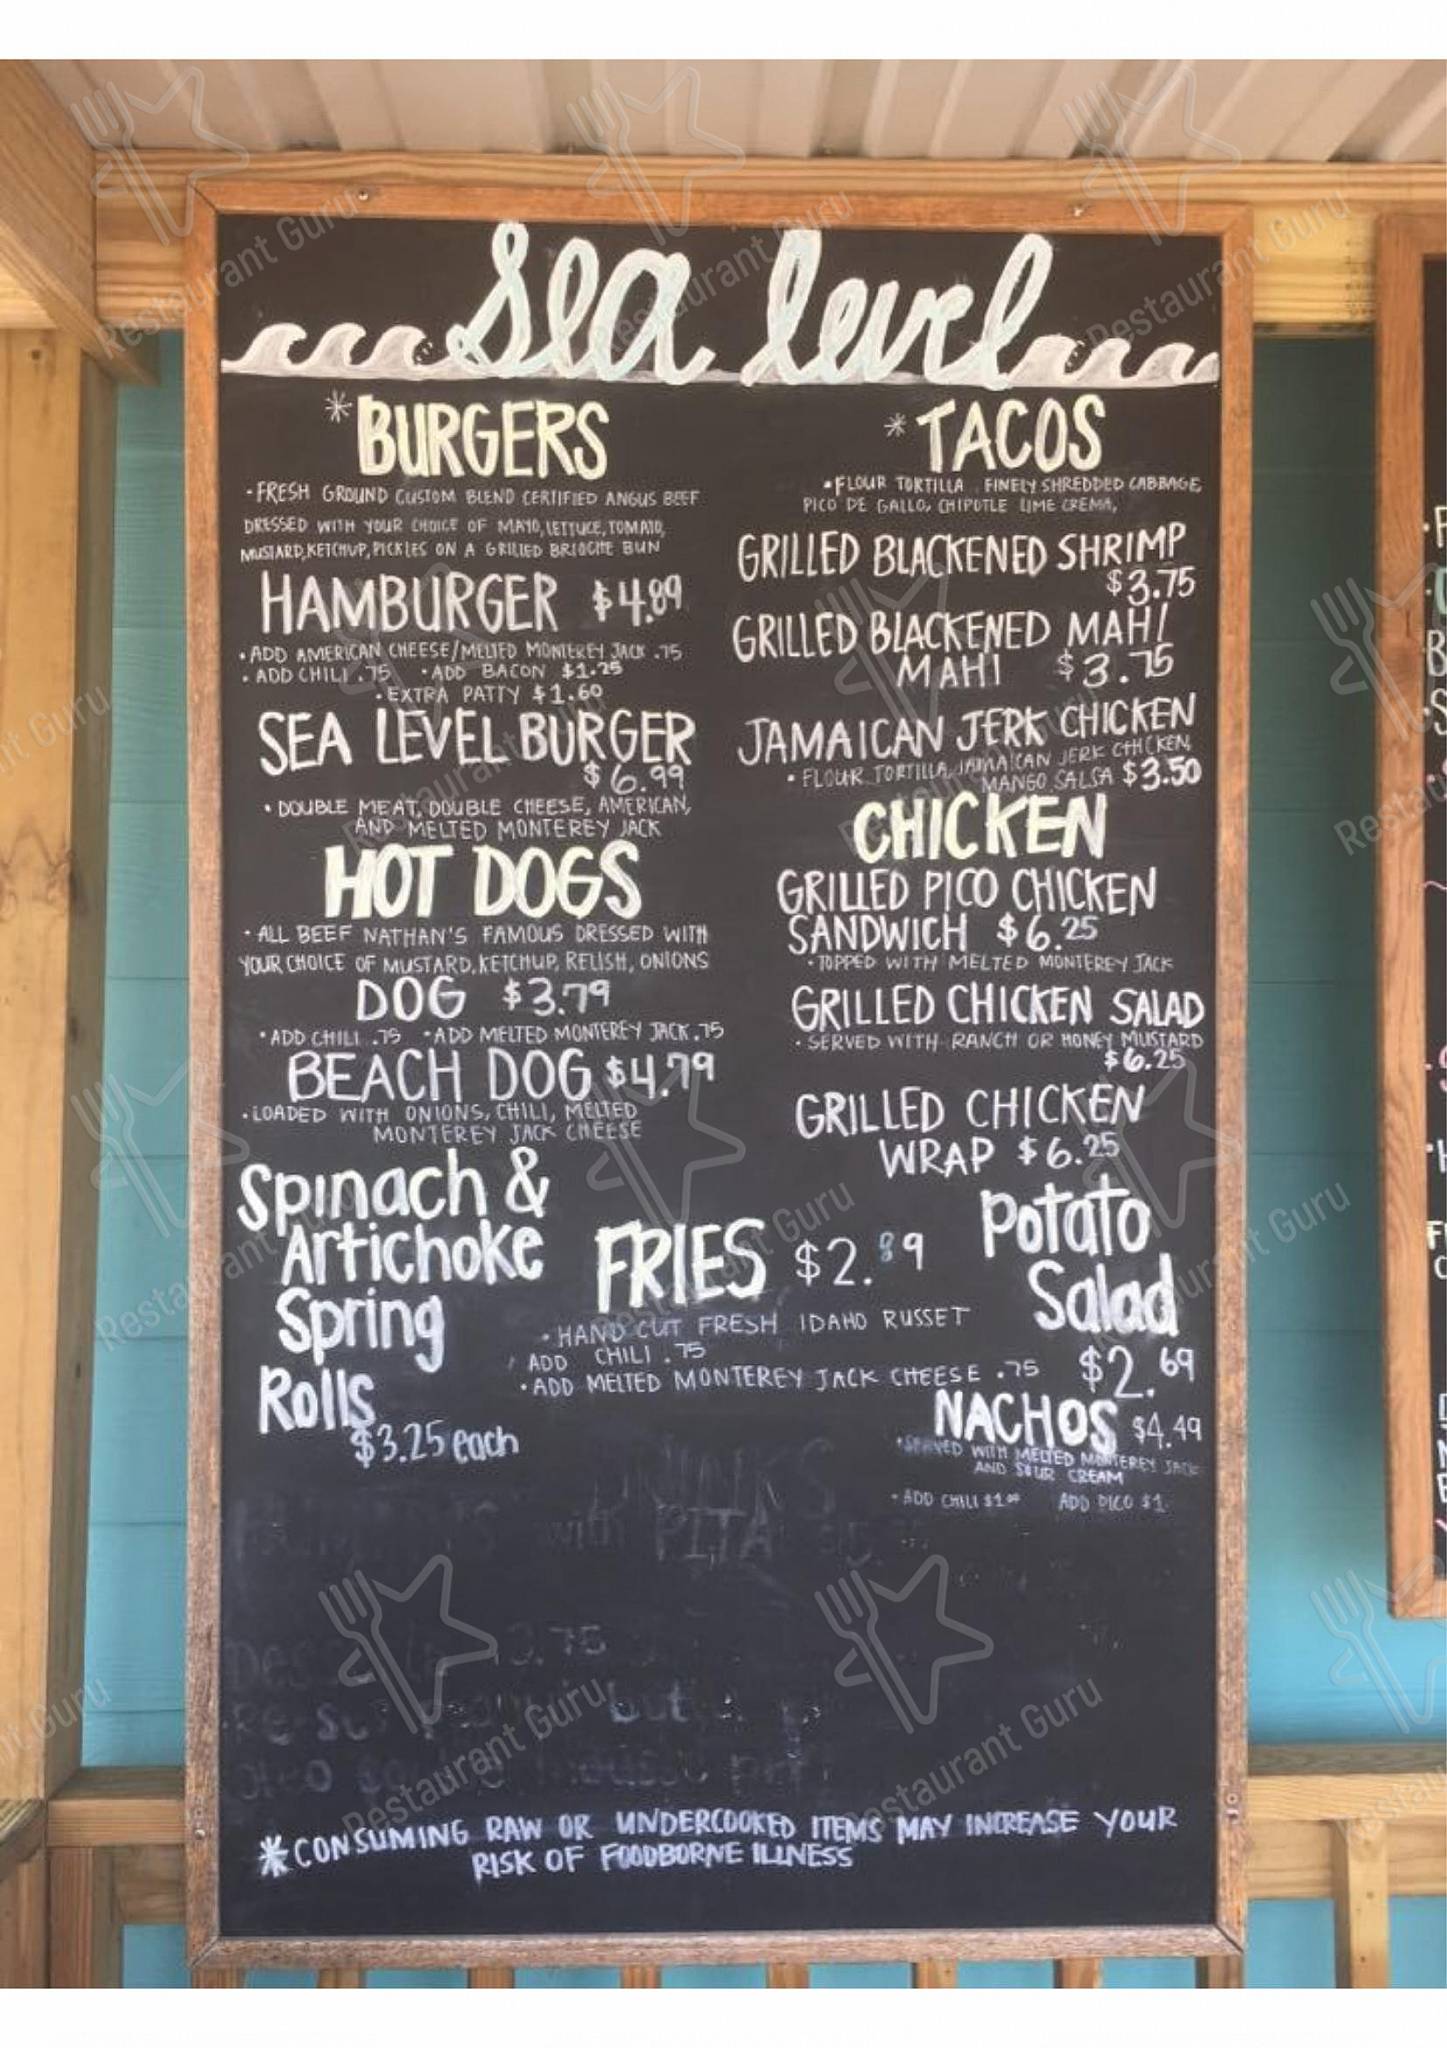 sea level
*BURGERS
• FRESH GROUND CUSTOM BLEND CERTIFIED ANGUS BEEF
DRESSED WITH YOUR CHOICE OF MAYO, LETTUCE, TOMATO,
MUSTARD, KETCHUP, PICKLES ON A GRILLED BRIOCHE BUN
HAMBURGER $4.89
• ADD AMERICAN CHEESE/MELTED MONTEREY JACK .75
• ADD CHILI .75 • ADD BACON $1.25
• EXTRA PATTY $1.60
SEA LEVEL BURGER
$6.99
• DOUBLE MEAT, DOUBLE CHEESE, AMERICAN,
AND MELTED MONTEREY JACK
HOT DOGS
• ALL BEEF NATHAN'S FAMOUS DRESSED WITH
YOUR CHOICE OF MUSTARD, KETCHUP, RELISH, ONIONS
DOG $3.79
• ADD CHILI .75 • ADD MELTED MONTEREY JACK .75
BEACH DOG $4.79
• LOADED WITH ONIONS, CHILI, MELTED
MONTEREY JACK CHEESE
Spinach &
Artichoke
Spring
Rolls
$3.25 each
*TACOS
• FLOUR TORTILLA FINELY SHREDDED CABBAGE
PICO DE GALLO, CHIPOTLE LIME CREMA,
GRILLED BLACKENED SHRIMP
$3.75
GRILLED BLACKENED MAHI
MAHI $3.75
JAMAICAN JERK CHICKEN
• FLOUR TORTILLA, JAMAICAN JERK CHICKEN
MANGO SALSA $3.50
CHICKEN
GRILLED PICO CHICKEN
SANDWICH $6.25
• TOPPED WITH MELTED MONTEREY JACK
GRILLED CHICKEN SALAD
• SERVED WITH RANCH OR HONEY MUSTARD
$6.25
GRILLED CHICKEN
WRAP $6.25
FRIES $2.89
• HAND CUT FRESH IDAHO RUSSET
ADD CHILI .75
• ADD MELTED MONTEREY JACK CHEESE .75
Potato
Salad
$2.69
NACHOS $4.49
• SERVED WITH MELTED MONTEREY JACK
AND SOUR CREAM
• ADD CHILI $1.00 ADD PICO $1
with PITA
3.75
*CONSUMING RAW OR UNDERCOOKED ITEMS MAY INCREASE YOUR
RISK OF FOODBORNE ILLNESS
Restaurant Guru